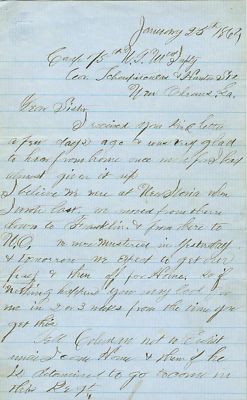 January 25th 1864
Camp 75th N.Y. Vol Infty
Cor. & Sts
New Orleans, La.
Dear Sister
I received you kind letter
a few days ago & was very glad
to hear from home once more for I had
almost give it up
I believe we were at New Iberia when
I wrote last. we moved from there
down to Franklin & from there to
N.O. we were mustered in yesterday
& tomorrow we expect to get our
pay & then off for Home, so if
nothing happens you may look for
me in 2 or 3 weeks from the time you
get this
Tell not to Enlist
until I come Home & then if he
is determined to go to come in
this Regt.